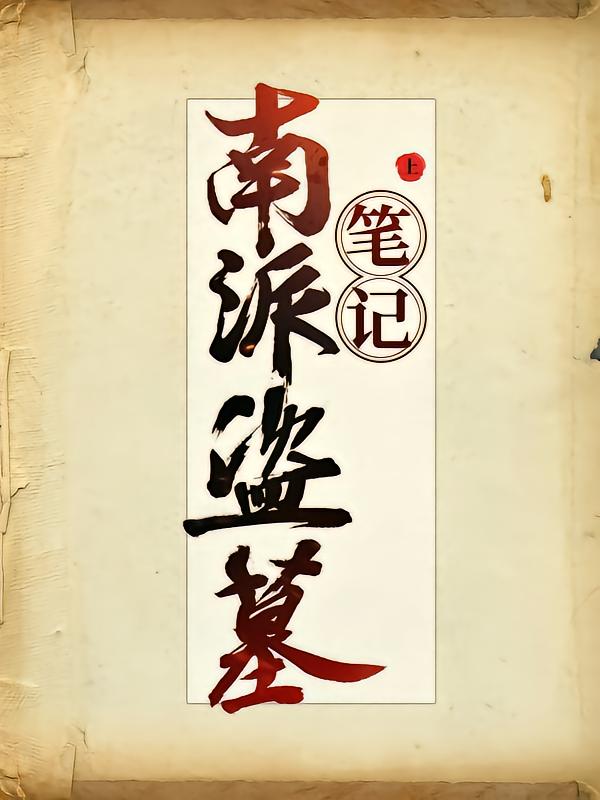 南派盗墓
笔记
上